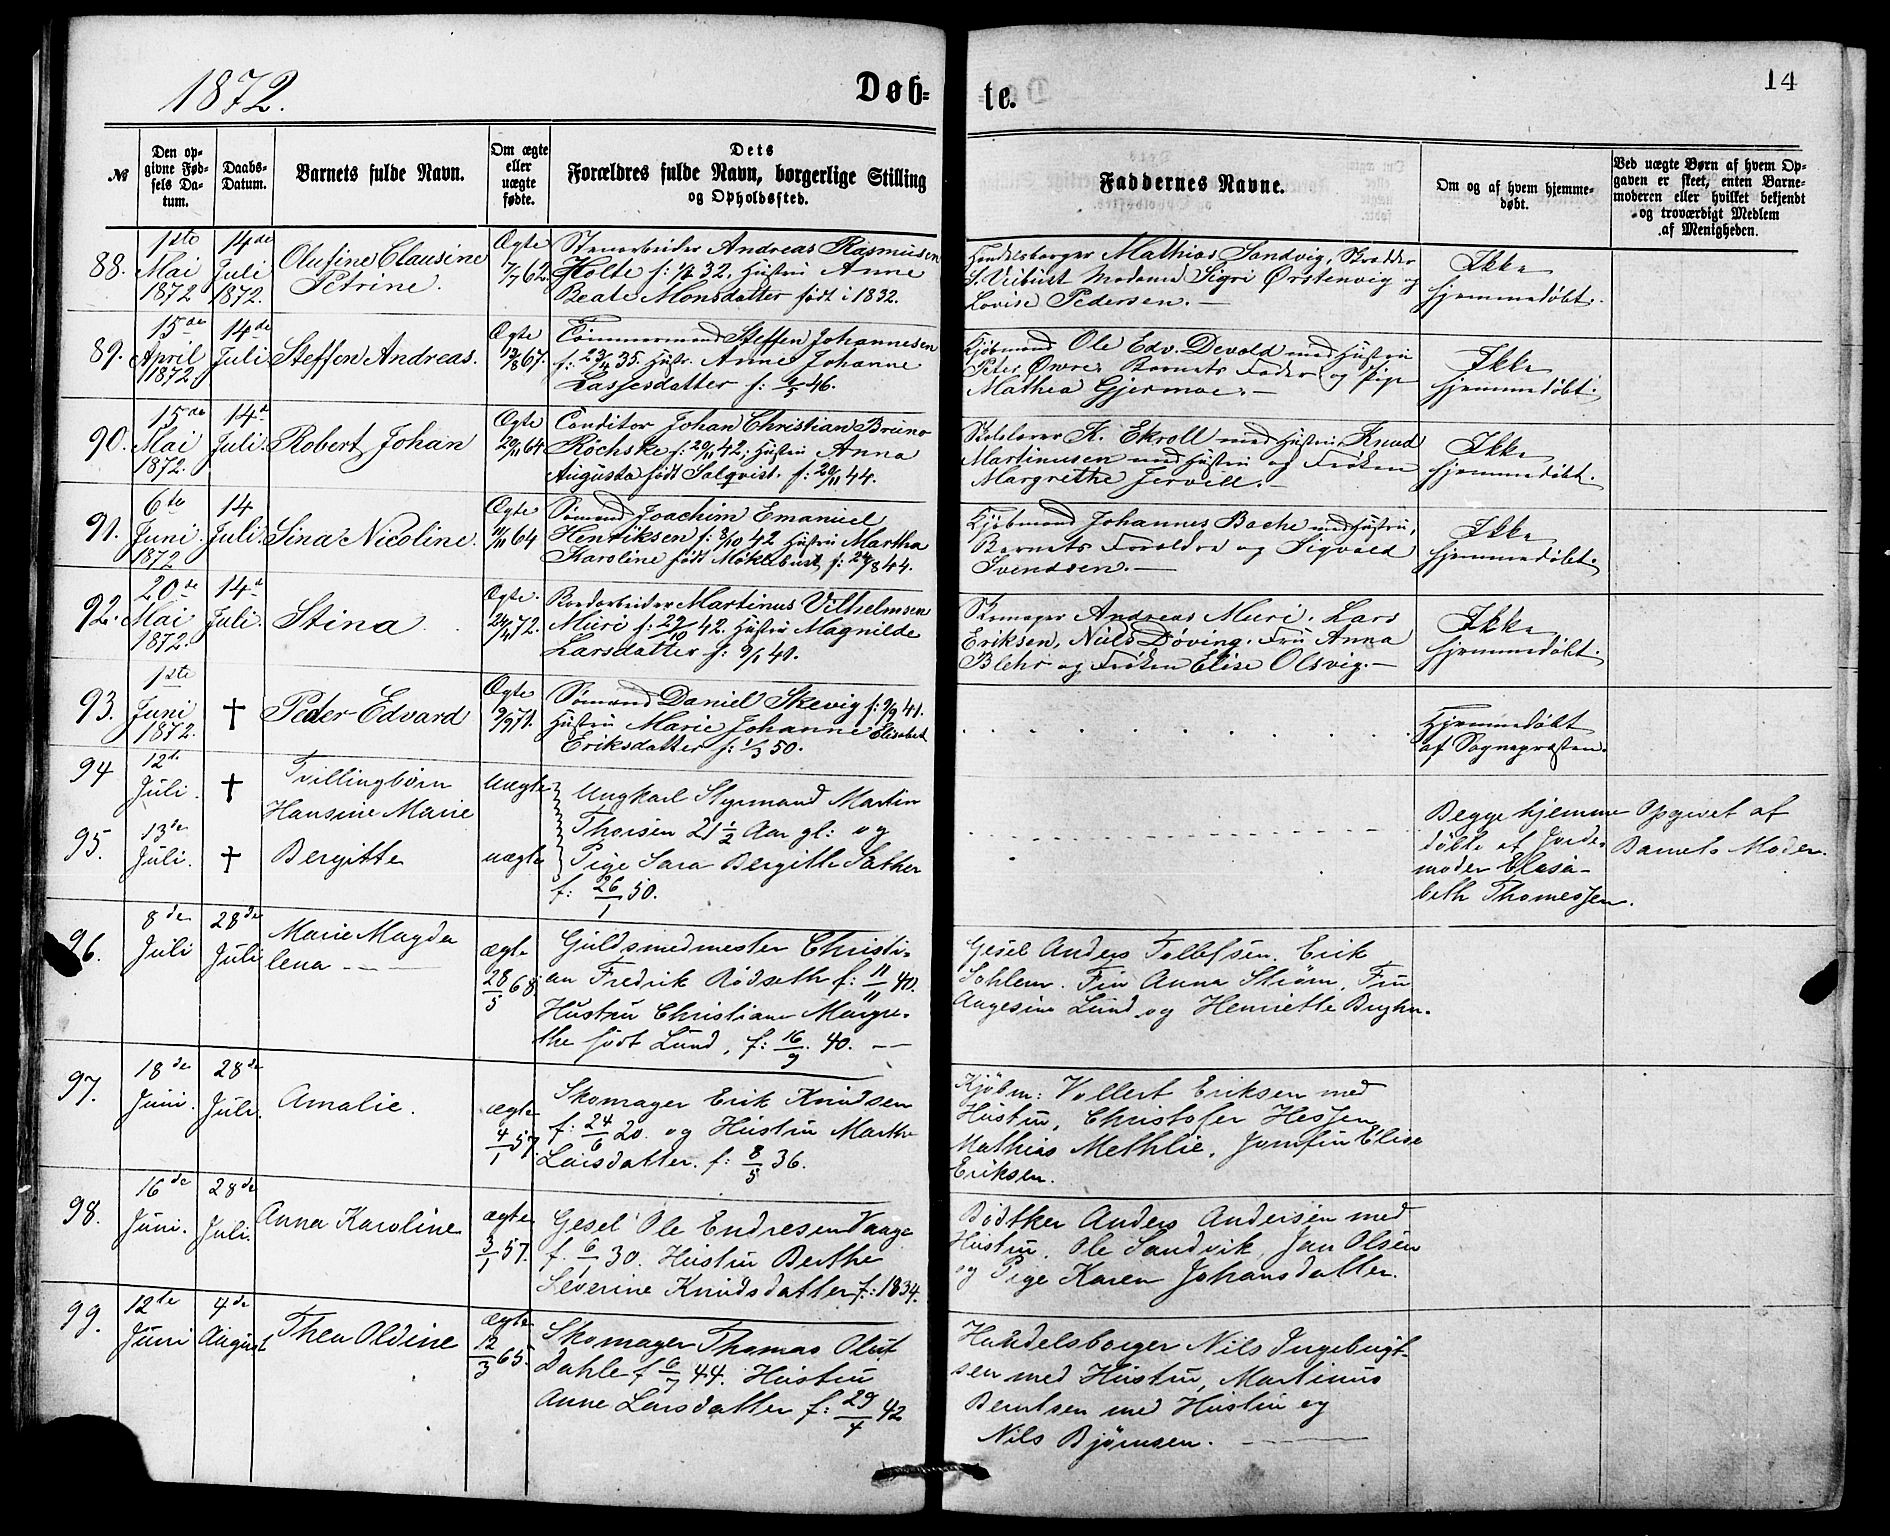 1872.
Døb=
te.
14
№
Den op-
givne Fød-
sels Da-
tum.
Daabs-
Datum.
Barnets fulde Navn.
Om ægte
eller
uægte
fødte.
Dets
Forældres fulde Navn, borgerlige Stilling
og Opholdssted.
Faddernes Navne.
Om og af hvem hjemme-
døbt.
Ved uægte Børn af hvem Op-
gaven er skeet, enten Barne-
moderen eller hvilket bekjendt
og troværdigt Medlem
af Menigheden.
88.
1ste
Mai
1872
14de
Juli
1872.
Olufine Clausine
Petrine.
Ægte
7/7 62.
Stenarbeider Andreas Rasmusen
Holte f: 32. Hustru Anne
Beate Monsdatter født i 1832.
Handelsborger Mathias Sandvig, Skrædder
S. Veibust Madame Sigri Ørstenvig og
Lovise Pedersen. —
Ikke
hjemmedøbt.
89.
15de
April
1872
14de
Juli
Steffen Andreas.
Ægte
67.
Tømmermand Steffen Johannesen
f: 35. Hustr. Anne Johanne
Lassesdatter f: 46.
Kjøbmand Ole Edv. Devold med Hustru
Peter Øvre, Barnets Fader og Pige
Mathea Gjermoe. —
Ikke
hjemmedøbt.
90.
15de
Mai
1872.
14d
Juli.
Robert Johan
Ægte
29/11 64
Conditor Johan Christian Bruno
Røchske f: 20/11 42, Hustru Anna
Augusta født Salqvist. f: 20/11 44.
Skolelærer K. Ekroll med Hustru, Knud
Martinusen med Hustru og Frøken
Margrethe Jervell. —
Ikke
hjemmedøbt.
91.
6te
Juni
1872
14
Juli.
Sina Nicoline.
Ægte
11/11 64
Sømand Joachim Emanuel
Henriksen f: 8/10 42 Hustru Martha
Karoline født Møklebust, f: 24/8 44.
Kjøbmand Johannes Bache med Hustru,
Barnets Forældre og Sigvald
Svendsen. —
Ikke
hjemmedøbt.
92.
20de
Mai
1872.
14d
Juli.
Stina
Ægte.
72.
Bordarbeider Martinus Vilhelmsen
Muri f: 29/10 42. Hustru Magnilde
Larsdatter f: 9/1 40.
Skomager Andreas Muri. Lars
Eriksen, Nils Døving. Fru Anna
Blehr og Frøken Elise Olsvig. —
Ikke
hjemmedøbt.
93.
1ste
Juni
1872.
†
Peder Edvard
Ægte
9/9 71.
Sømand Daniel Skevig f: 9/9 41.
Hustru Marie Johanne Elisabet
Eriksdatter f: 1/3 50.
Hjemmedøbt
af Sognepræsten.
94
12te
Juli.
†
Tvillingbørn
Hansine Marie
Uægte
Ungkarl Styrmand Martin
Thorsen 21 1/2 Aar gl: og
Begge hjemme
Opgivet af
95.
13de
Juli.
†
Bergitte
uægte
Pige Sara Bergitte Sæther
f: 26/1 50.
døbte af Jorde-
Barnets Moder.
moder Elisa-
beth Thomessen.
96.
8de
Juli
28de
Juli
Marie Magda
lena — —
ægte
28/5 68.
Guldsmedmester Christi-
an Fredrik Rødseth f: 11/11 40.
Hustru Christiane Margre-
the født Lund, f: 16/9. 40. —
Gesel Anders Tollefsen. Erik
Sohlem. Fru Anna Strøm, Fru
Aagesine Lund og Henriette
97.
18de
Juni.
28de
Juli.
Amalie.
ægte
4/1 57.
Skomager Erik Knudsen
f: 24/6 20. og Hustru Marthe
Larsdatter. f: 8/5 36.
Kjöbm: Vollert Eriksen med
Hustru, Christofer Hessen
Mathias Methlie, Jomfru Elise
Eriksen.
98.
16de
Juni.
28de
Juli.
Anna Karoline
ægte
3/1 57.
Gesel Ole Endresen Vaage
f. 6/1 30. Hustru Berthe
Severine Knudsdatter f: 1834.
Bødtker Anders Andersen med
Hustru. Ole Sandvik, Jan Olsen
og Pige Karen Johansdatter.
99.
12te
Juni
4de
August
Thea Oldine
ægte
12/3 65.
Skomager Thomas Oluf
Dahle f 6/7 44. Hustru
Anne Larsdatter f: 29/4 42
Handelsborger Nils Ingebrigt-
sen med Hustru, Martinus
Berntsen med Hustru og
Nils Bjørnsen. —